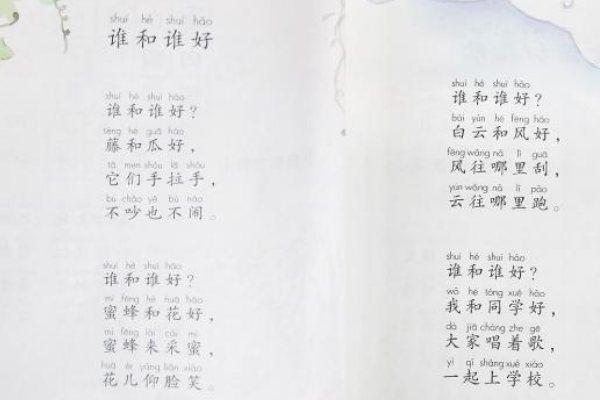 shuí hé shuí hǎo
谁和谁好
shuí hé shuí hǎo
谁和谁好？
téng hé guā hǎo
藤和瓜好，
tā men shǒu lā shǒu
它们手拉手，
bù chǎo yě bù nào
不吵也不闹。
shuí hé shuí hǎo
谁和谁好？
mì fēng hé huā hǎo
蜜蜂和花好，
mì fēng lái cǎi mì
蜜蜂来采蜜，
huā ér yǎng liǎn xiào
花儿仰脸笑。
shuí hé shuí hǎo
谁和谁好？
bái yún hé fēng hǎo
白云和风好，
fēng wǎng nǎ lǐ guā
风往哪里刮，
yún wǎng nǎ lǐ pǎo
云往哪里跑。
shuí hé shuí hǎo
谁和谁好？
wǒ hé tóng xué hǎo
我和同学好，
dà jiā chàng zhe gē
大家唱着歌，
yì qǐ shàng xué xiào
一起上学校。